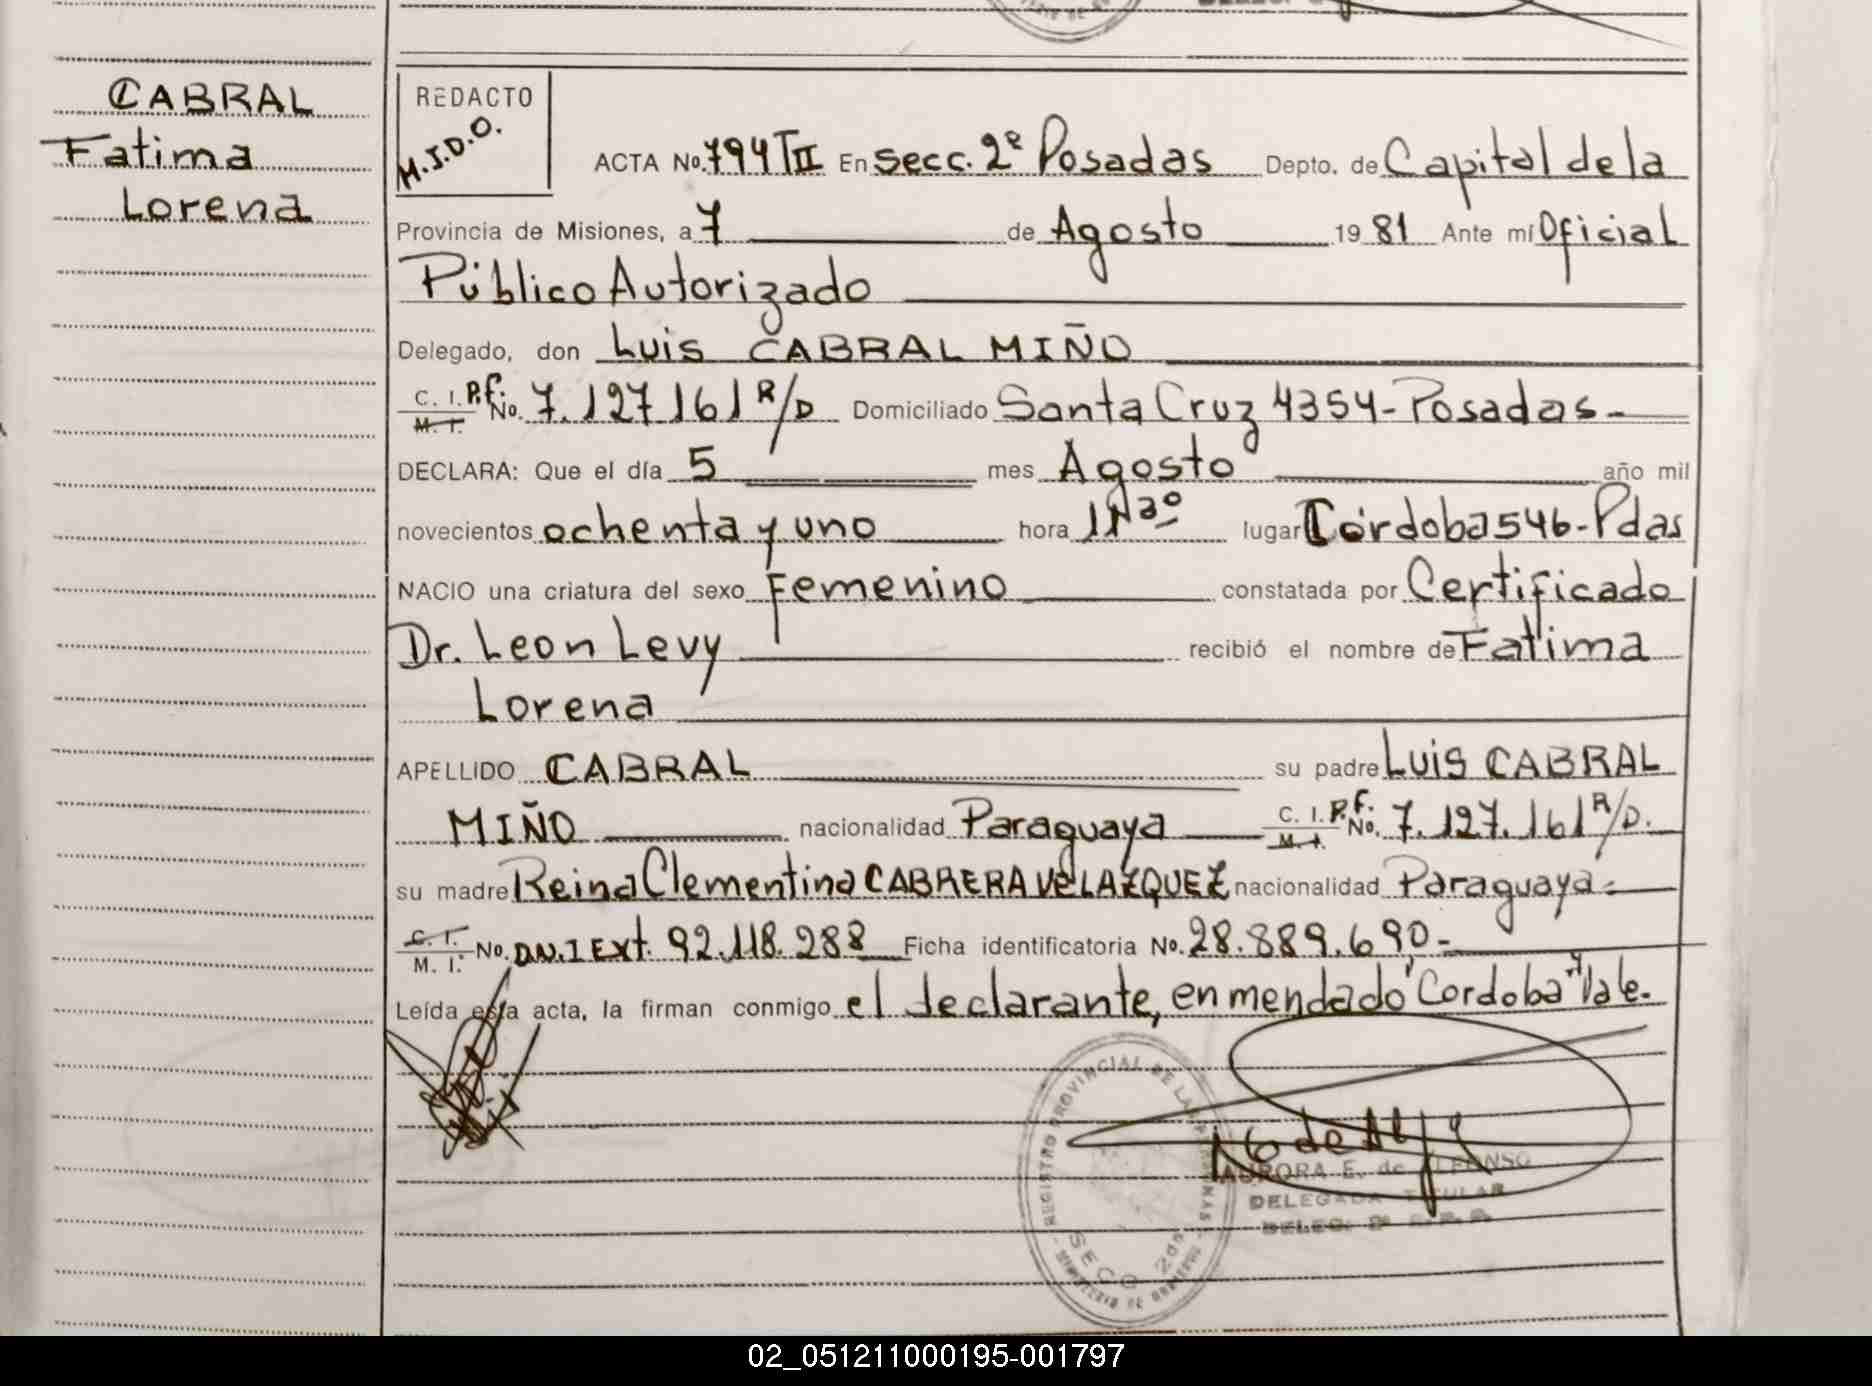 CABRAL
Fatima
Lorena
REDACTO
M.J.D.O.
ACTA No. 794 TII En secc. 2ª Posadas Depto. de Capital de la
Provincia de Misiones, a 7 de Agosto 19 81 Ante mí Oficial
Público Autorizado
Delegado, don Luis CABRAL MIÑO
C. I. P.F. M. I. No. 7.127.161 R/D Domiciliado Santa Cruz 4354-Posadas-
DECLARA: Que el día 5 mes Agosto año mil
novecientos ochenta y uno hora 11 30 lugar Córdoba 546-Pdas
NACIO una criatura del sexo Femenino constatada por Certificado
Dr. Leon Levy recibió el nombre de Fatima
Lorena
APELLIDO CABRAL su padre Luis CABRAL
MIÑO nacionalidad Paraguaya C. I. P.F. M. I. No. 7.127.161 R/D.
su madre Reina Clementina CABRERA VELAZQUEZ nacionalidad Paraguaya.-
C. I. M. I. No. D.N.I Ext. 92.118.288 Ficha identificatoria No. 28.889.690.-
Leída esta acta, la firman conmigo el declarante, enmendado "Cordoba" Vale.
REGISTRO PROVINCIAL DE LAS PERSONAS
SECC 2da
MINISTERIO DE GOBIERNO
AURORA E. de ALFONSO
DELEGADA TITULAR
02_051211000195-001797